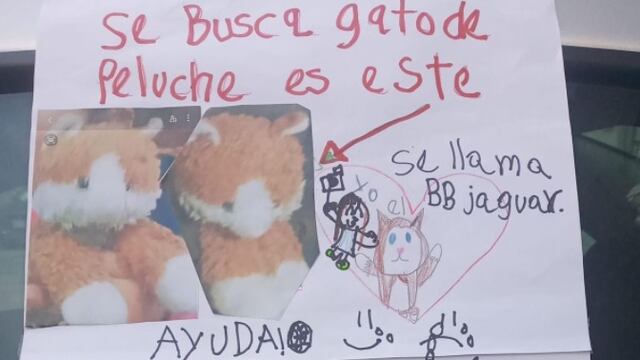 Se Busca gato de
Peluche es este
se llama
BB jaguar.
yo el
AYUDA!